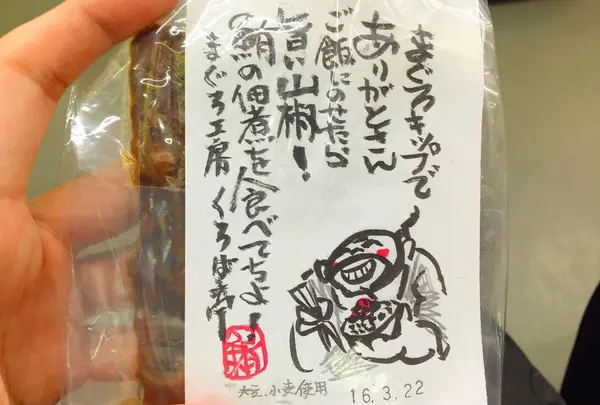 まぐろキップで
ありがときん
ご飯にのせたら
旨い山椒!
の鮪の佃煮を食べてちょ!
まぐろ工房 くろば亭
大豆、小麦使用
16.3.22